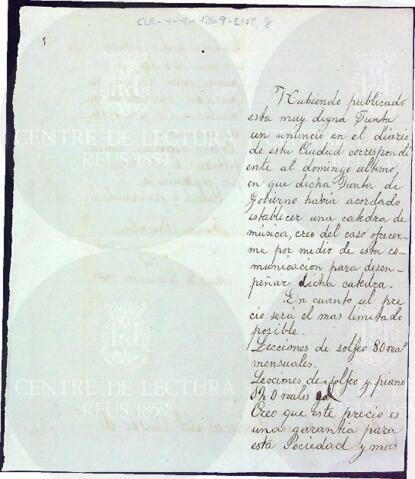 CLR-4-4-1869-ENE, 8
Hubiendo publicado
esta muy digna Junta
un anuncio en el diario
de esta Ciudad correspond
ente al domingo ultimo,
en que dicha Junta de
Gobierno habia acordado
establecer una catedra de
música, creo del caso ofrecer-
me por medio de esta co-
municacion para desem-
peñar dicha catedra.
En cuanto al pre
cio será el mas limitado
posible.
Lecciones de solfeo 80 rea
mensuales.
Lecciones de solfeo y piano
reales
Creo que este precio es
una garantía para
esta Sociedad y mas
CENTRE DE LECTURA
REUS 1859
CENTRE DE LECTURA
REUS 1859